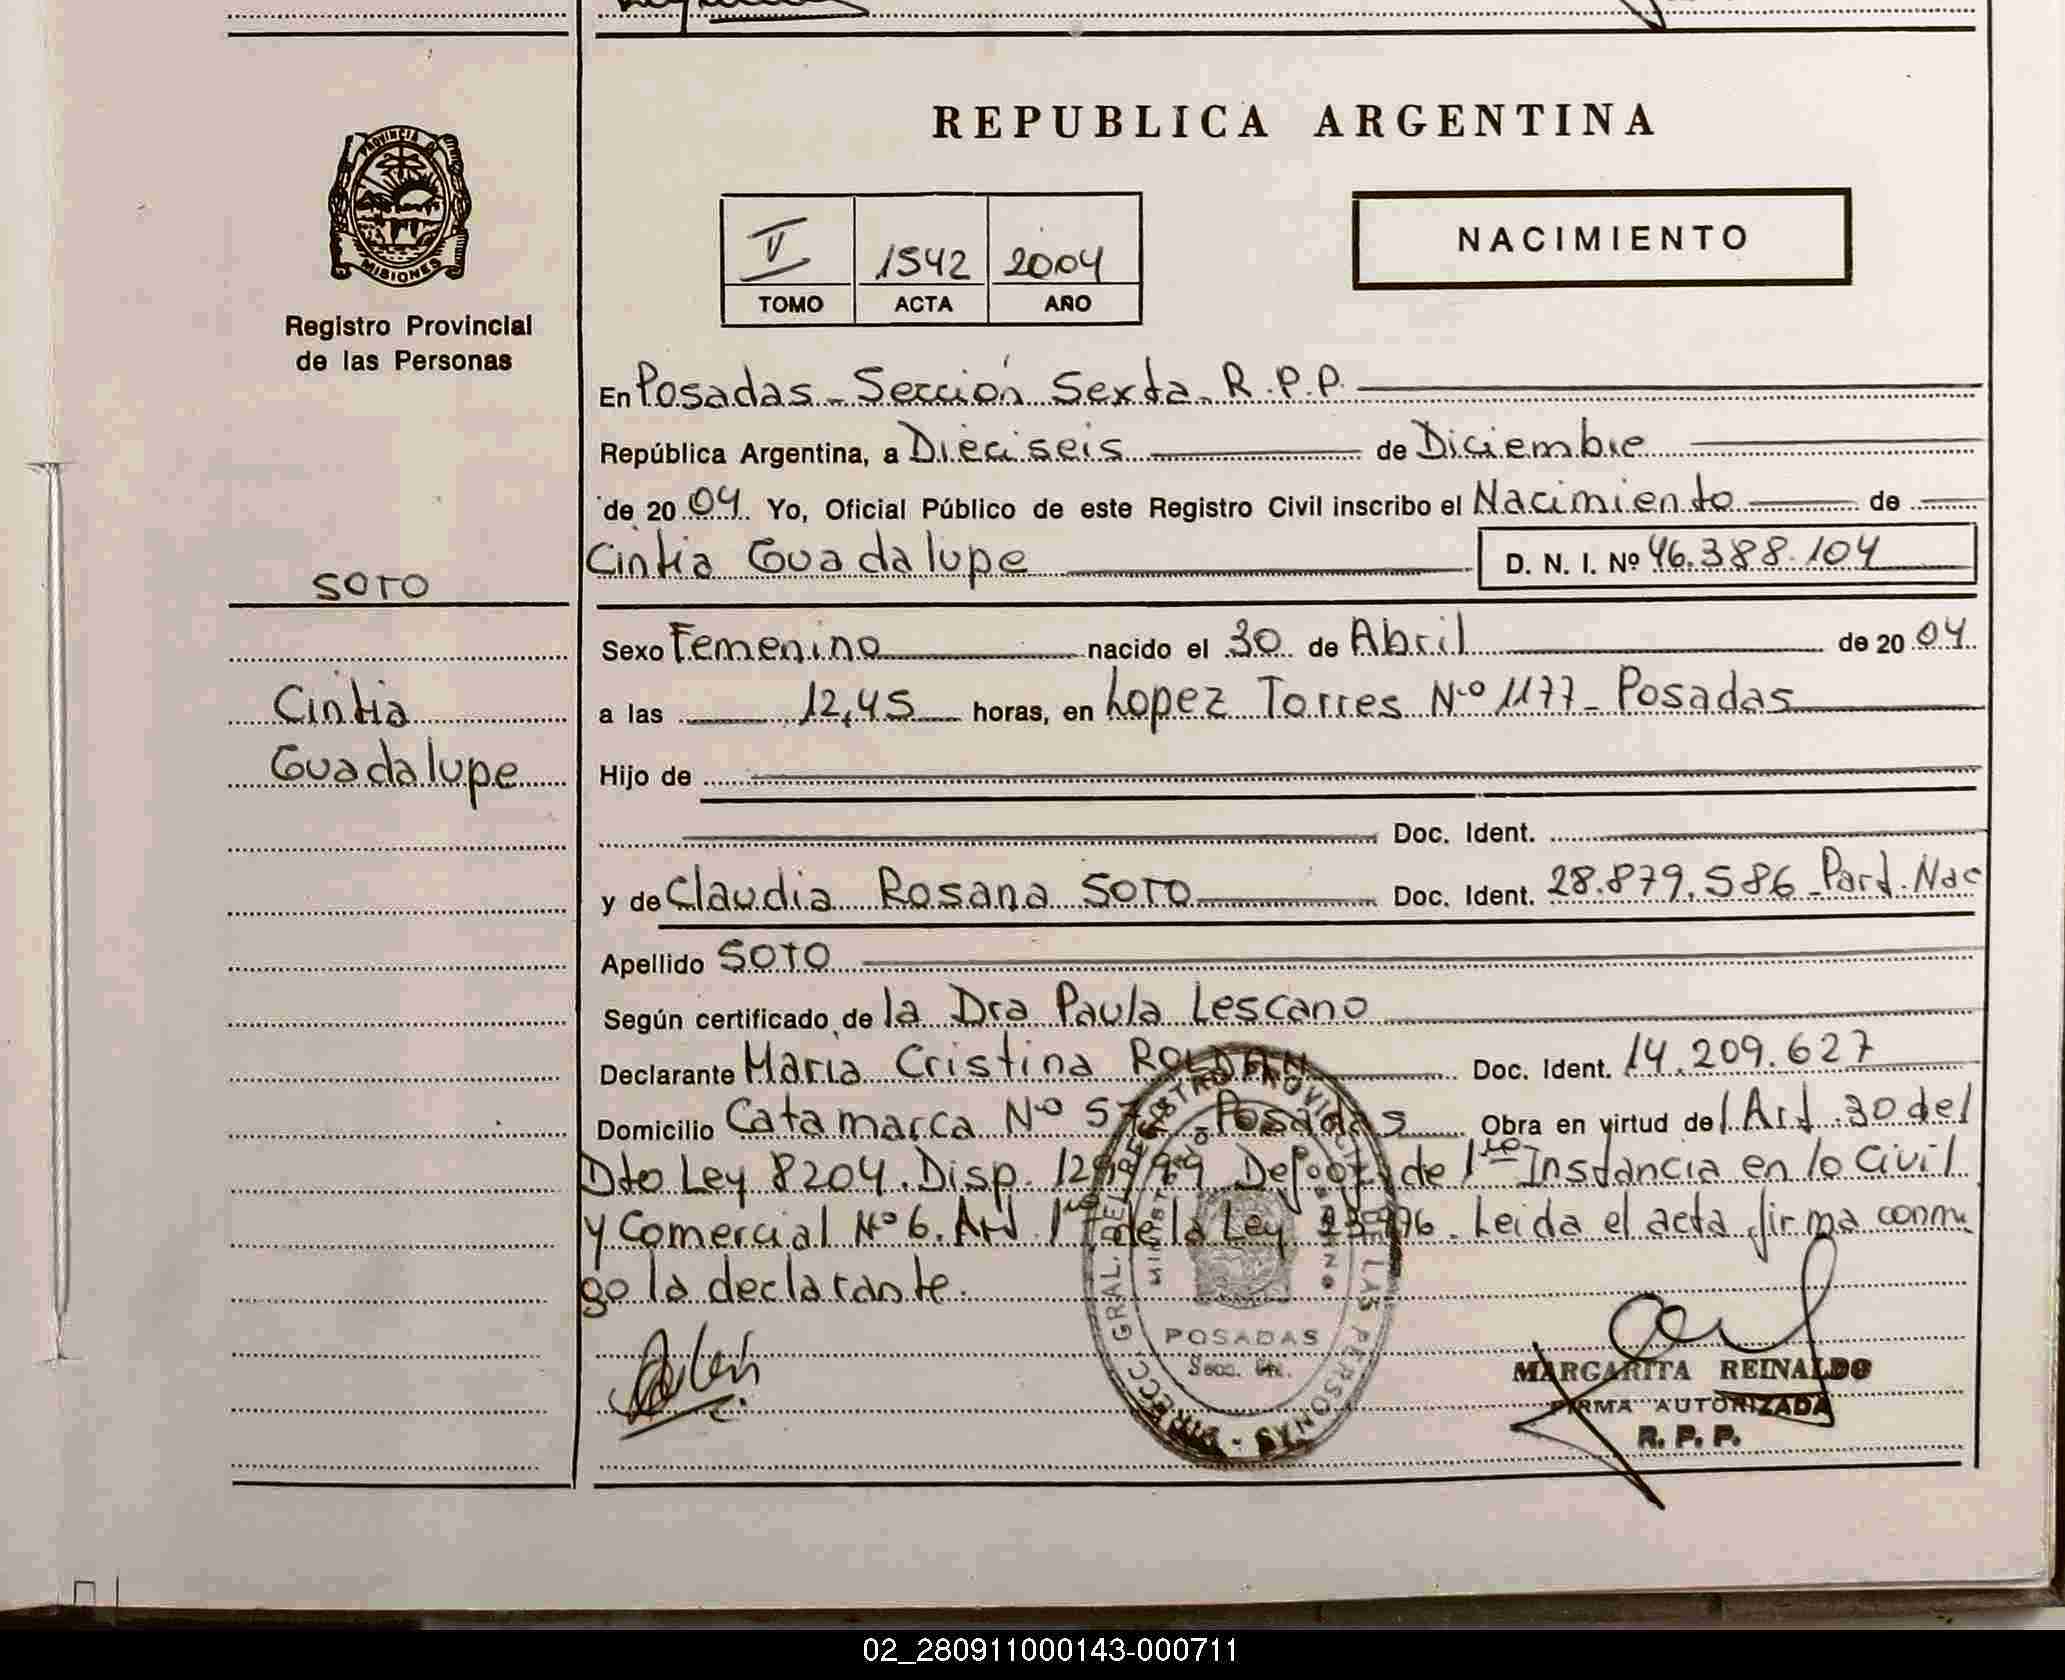 PROVINCIA DE
MISIONES
Registro Provincial
de las Personas
SOTO
Cintia
Guadalupe
REPUBLICA ARGENTINA
V 1542 2004
TOMO ACTA AÑO
NACIMIENTO
En Posadas - Sección Sexta - R.P.P.
República Argentina, a Dieciseis de Diciembre
de 2004. Yo, Oficial Público de este Registro Civil inscribo el Nacimiento de
Cintia Guadalupe D. N. I. Nº 46.388.104
Sexo Femenino nacido el 30 de Abril de 2004
a las 12,45 horas, en Lopez Torres Nº 1177 - Posadas
Hijo de
Doc. Ident.
y de Claudia Rosana SOTO Doc. Ident. 28.879.586 - Part. Nac
Apellido SOTO
Según certificado de la Dra Paula Lescano
Declarante Maria Cristina ROLDAN Doc. Ident. 14.209.627
Domicilio Catamarca Nº Posadas Obra en virtud del Art. 30 del
Dto Ley 8204. Disp. de 1ro Instancia en lo Civil
y Comercial Nº 6. Art. 1ro de la Ley Leida el acta firma conmi
go la declarante.
DIRECC. GRAL. DEL REGISTRO PROVINCIAL DE LAS PERSONAS
POSADAS
MARGARITA REINALDO
FIRMA AUTORIZADA
R. P. P.
02_280911000143-000711